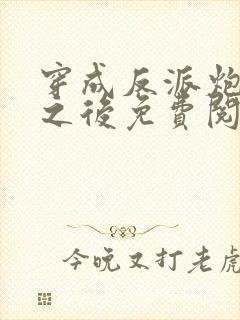 穿成反派炮
之後免費閱
今晚又打老虎